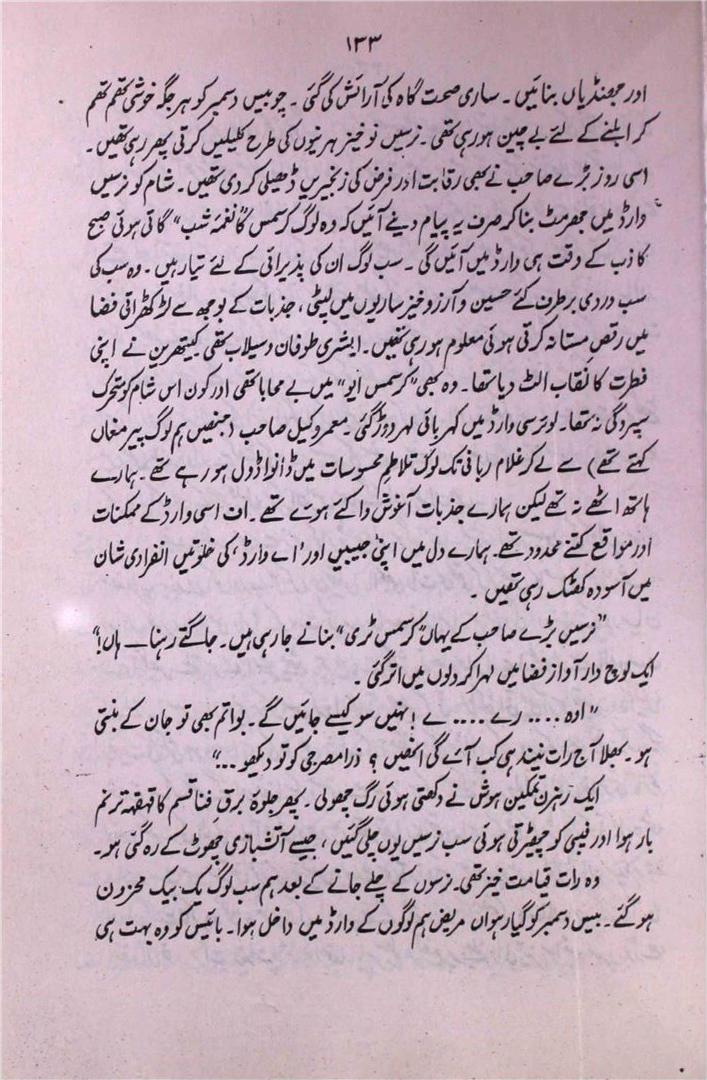 ۱۳۳
اور جھنڈیاں بنائیں ۔ ساری صحت گاہ کی آرائش کی گئی ۔ چوبیس دسمبر کو ہر جگہ خوشی تھم تھم
کر ابلنے کے لئے بے چین ہو رہی تھی ۔ نرسیں نوخیز ہرنیوں کی طرح کلیلیں کرتی پھر رہی تھیں ۔
اسی روز بڑے صاحب نے بھی رقابت اور فرض کی زنجیریں ڈھیلی کر دی تھیں ۔ شام کو نرسیں
وارڈ میں جھرمٹ بنا کر صرف یہ پیام دینے آئیں کہ وہ لوگ کرسمس کا "نغمۂ شب" گاتی ہوئی صبح
کاذب کے وقت ہی وارڈ میں آئیں گی ۔ سب لوگ ان کی پذیرائی کے لئے تیار ہیں ۔ وہ سب کی
سب دردی برطرف کئے حسین و آرزو خیز ساریوں میں لپٹی ، جذبات کے بوجھ سے لڑکھڑاتی فضا
میں رقص مستانہ کرتی ہوئی معلوم ہو رہی تھیں ۔ ایشری طوفان و سیلاب تھی کیتھرین نے اپنی
فطرت کا نقاب الٹ دیا تھا ۔ وہ بھی "کرسمس ایو" میں بے محابا تھی اور کون اس شام کو متحرک
سپردگی نہ تھا ۔ لوئرسی وارڈ میں کہربائی لہر دوڑ گئی ۔ معمر وکیل صاحب (جنھیں ہم لوگ پیر مغاں
کہتے تھے) سے لے کر غلام ربانی تک لوگ تلاطم محسوسات میں ڈانوا ڈول ہو رہے تھے ۔ ہمارے
ہاتھ اٹھے نہ تھے لیکن ہمارے جذبات آغوش وا کئے ہوئے تھے ۔ اف اسی وارڈ کے ممکنات
اور مواقع کتنے محدود تھے ۔ ہمارے دل میں اپنی جیبیں اور 'اے وارڈ' کی خلوتیں انفرادی شان
میں آسودہ کھٹک رہی تھیں ۔
"نرسیں بڑے صاحب کے یہاں "کرسمس ٹری" بنانے جا رہی ہیں ۔ جاگتے رہنا ـــ ہاں!"
ایک لوچ دار آواز فضا میں لہرا کر دلوں میں اتر گئی ۔
"اوہ .... رے .... ے! نہیں سو کیسے جائیں گے ۔ بوا تم بھی تو جان کے بنتی
ہو ۔ بھلا آج رات نیند ہی کب آئے گی انھیں ؟ ذرا مصرجی کو تو دیکھو .."
ایک رہزن تمکین ہوش نے دکھتی ہوئی رگ چھولی ۔ پھر جلوۂ برق فنا قسم کا قہقہہ ترنم
بار ہوا اور فیبی کو چھیڑتی ہوئی سب نرسیں یوں چلی گئیں ، جیسے آتشبازی چھوٹ کے رہ گئی ہو ۔
وہ رات قیامت خیز تھی ۔ نرسوں کے چلے جانے کے بعد ہم سب لوگ یک بیک محزون
ہو گئے ۔ بیس دسمبر کو گیارہواں مریض ہم لوگوں کے وارڈ میں داخل ہوا ۔ بائیس کو وہ بہت ہی